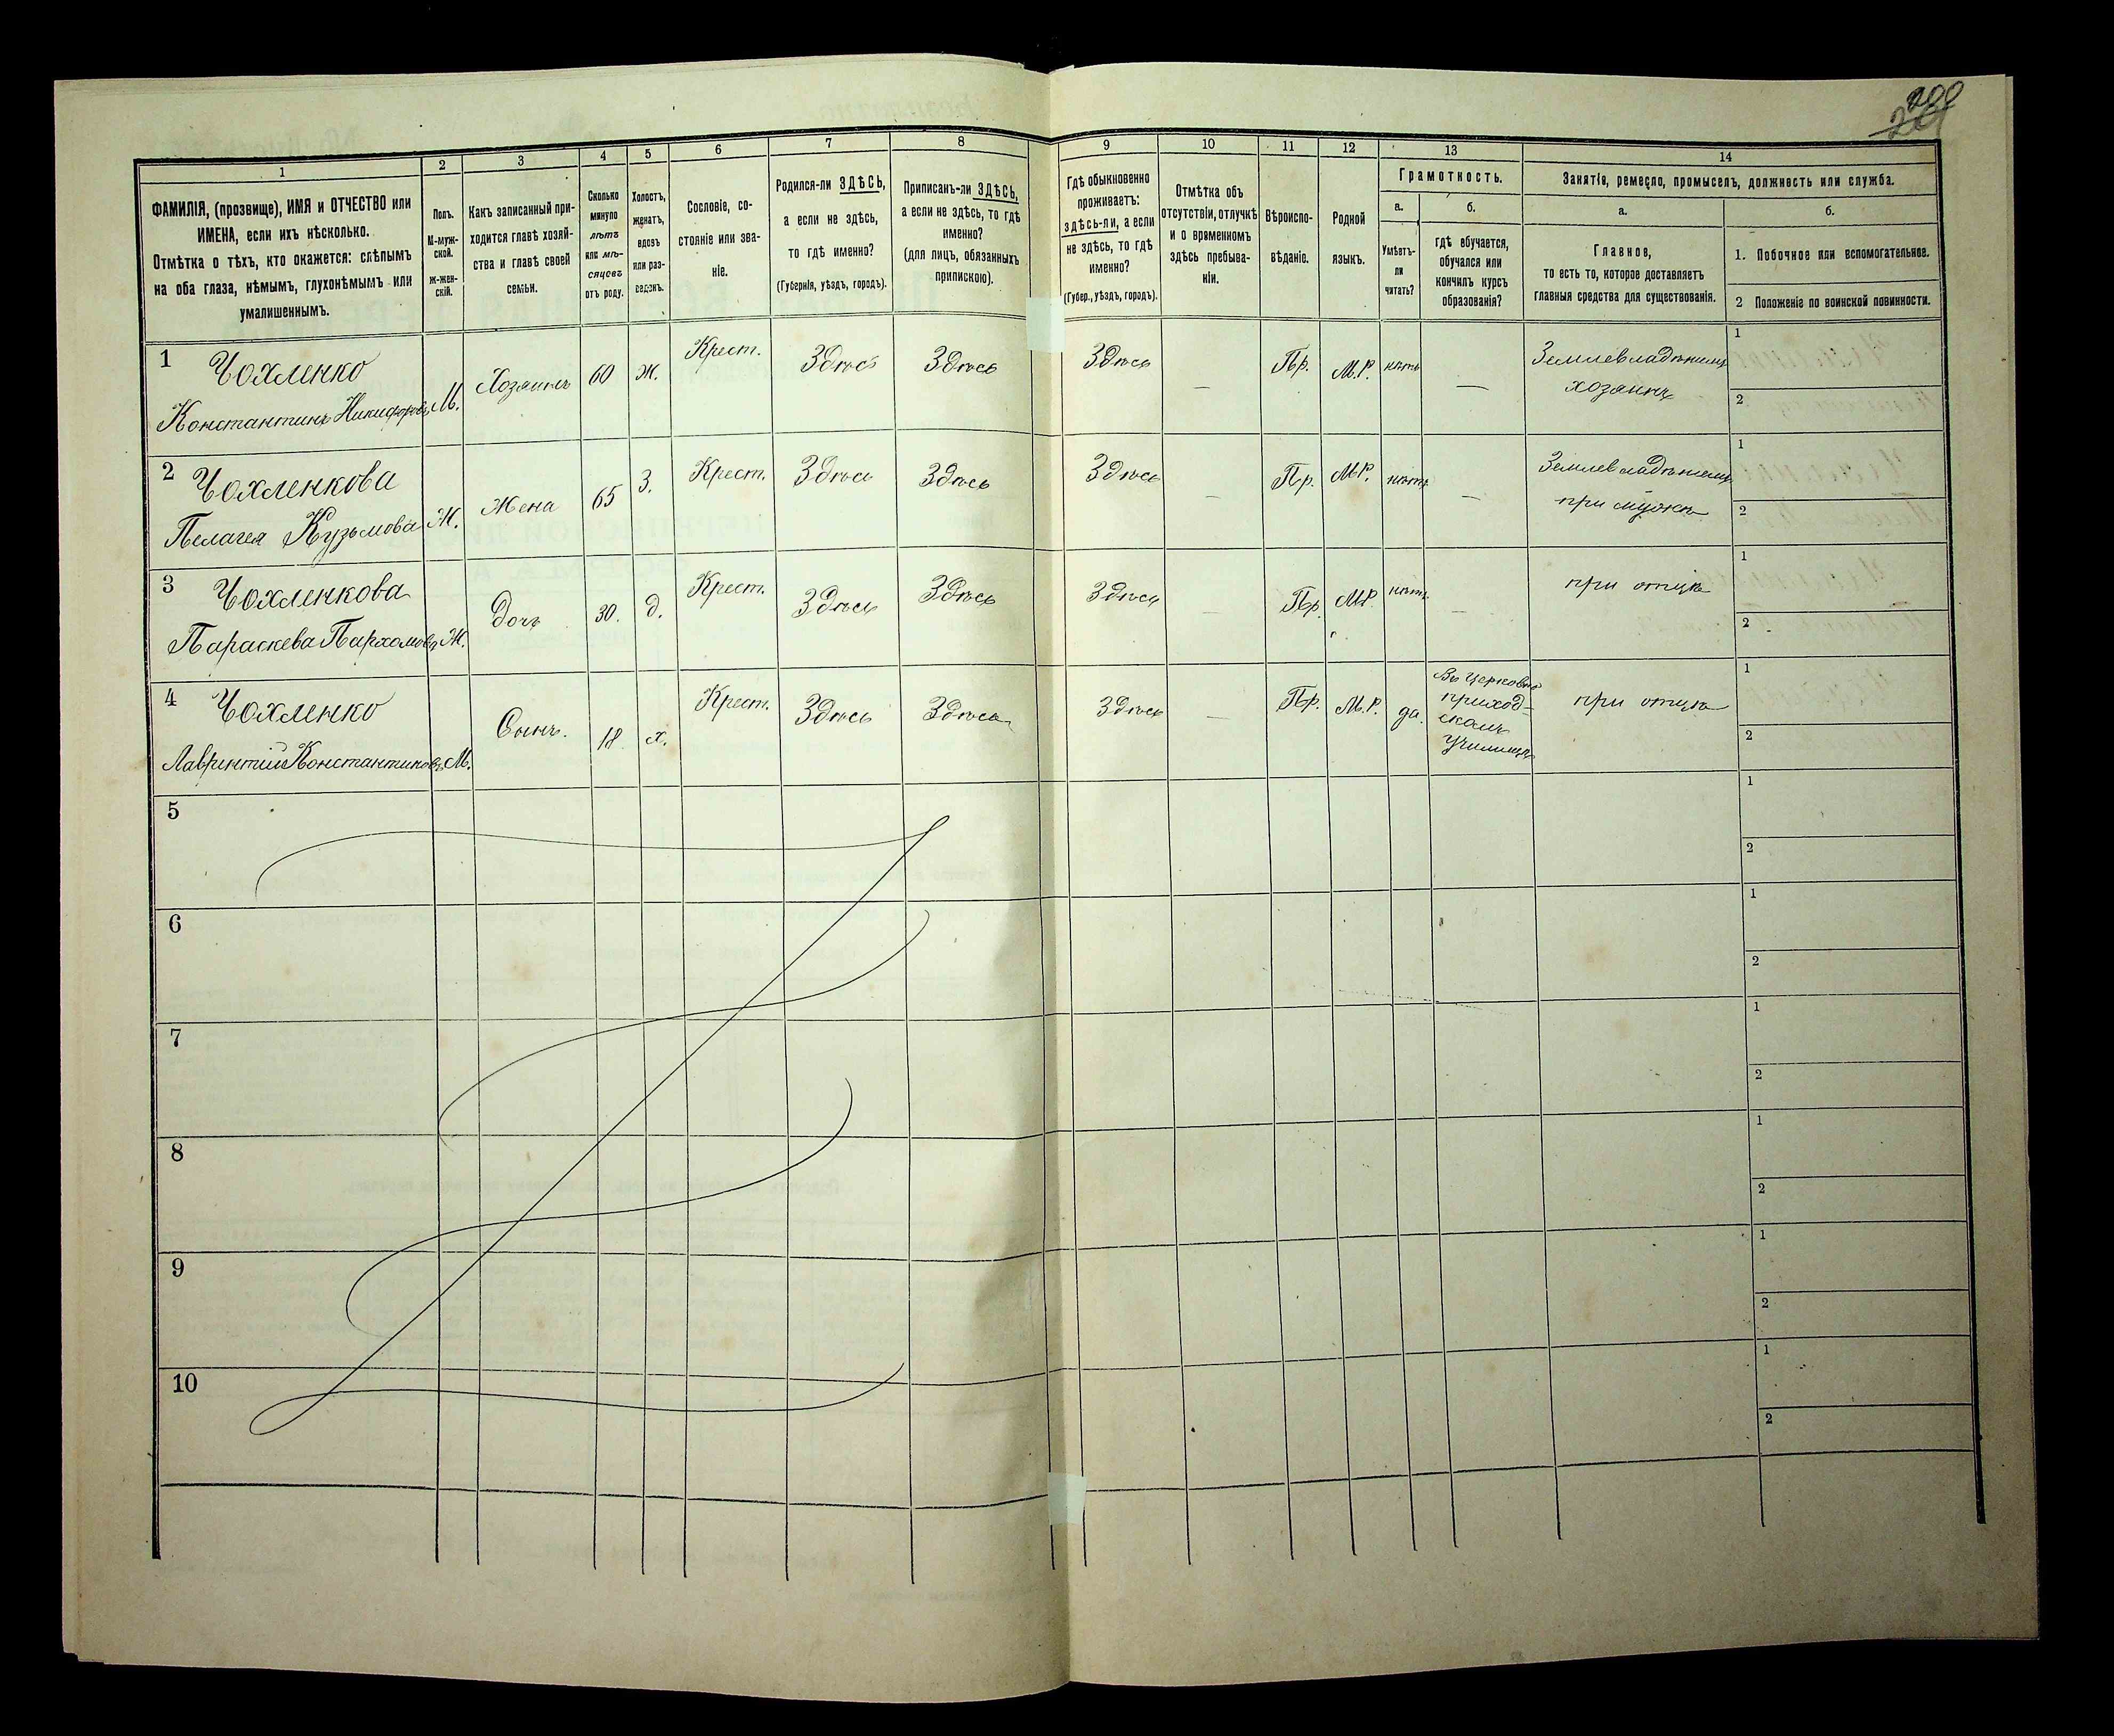 200
1
ФАМИЛІЯ, (прозвище), ИМЯ и ОТЧЕСТВО или
ИМЕНА, если ихъ нѣсколько.
Отмѣтка о тѣхъ, кто окажется: слѣпымъ
на оба глаза, нѣмымъ, глухонѣмымъ или
умалишеннымъ.
2
Полъ.
М-муж-
ской.
Ж-жен-
скій.
3
Какъ записанный при-
ходится главѣ хозяй-
ства и главѣ своей
семьи.
4
Сколько
минуло
лѣтъ
или мѣ-
сяцевъ
отъ роду.
5
Холостъ,
женатъ,
вдовъ
или раз-
веденъ.
6
Сословіе, со-
стояніе или зва-
ніе.
7
Родился-ли ЗДѢСЬ,
а если не здѣсь,
то гдѣ именно?
(Губернія, уѣздъ, городъ).
8
Приписанъ-ли ЗДѢСЬ,
а если не здѣсь, то гдѣ
именно?
(для лицъ, обязанныхъ
припискою).
9
Гдѣ обыкновенно
проживаетъ:
здѣсь-ли, а если
не здѣсь, то гдѣ
именно?
(Губер., уѣздъ, городъ).
10
Отмѣтка объ
отсутствіи, отлучкѣ
и о временномъ
здѣсь пребыва-
ніи.
11
Вѣроиспо-
вѣданіе.
12
Родной
языкъ.
13
Грамотность.
а.
Умѣетъ-
ли
читать?
б.
гдѣ обучается,
обучался или
кончилъ курсъ
образованія?
14
Занятіе, ремесло, промыселъ, должность или служба.
а.
Главное,
то есть то, которое доставляетъ
главныя средства для существованія.
б.
1. Побочное или вспомогательное.
2 Положеніе по воинской повинности.
1 Чохленко
Константинъ Никифоровъ М. Хозяинъ 60 Ж. Крест. Здѣсь Здѣсь Здѣсь — Пр. М.Р. нѣтъ — Землевладѣлецъ
хозяинъ
1
2
2 Чохленкова
Пелагея Кузьмова Ж. Жена 65 З. Крест. Здѣсь Здѣсь Здѣсь — Пр. М.Р. нѣтъ —
при мужѣ
1
2
3 Чохленкова
Параскева Пархомова Ж. Дочь 30. д. Крест. Здѣсь Здѣсь Здѣсь — Пр. М.Р. нѣтъ — при отцѣ
1
2
4 Чохленко
Лаврентій Константиновъ М. Сынъ. 18 х. Крест. Здѣсь Здѣсь Здѣсь — Пр. М.Р. да.
Въ церковно
приход-
скомъ
училищѣ
при отцѣ
1
2
5
1
2
6
1
2
7
1
2
8
1
2
9
1
2
10
1
2